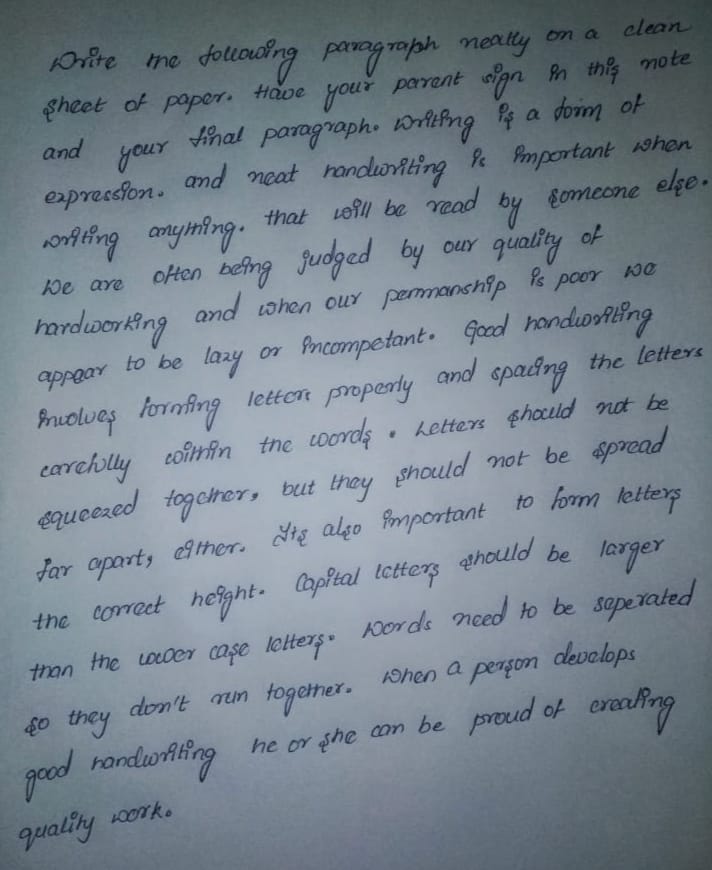 Write the following paragraph neatly on a clean
sheet of paper. Have your parent sign in this note
and your final paragraph. Writing is a form of
expression. and neat handwriting is important when
writing anything. that will be read by someone else.
We are often being judged by our quality of
hardworking and when our penmanship is poor we
appear to be lazy or incompetant. Good handwriting
involves forming letters properly and spacing the letters
carefully within the words. Letters should not be
squeezed together, but they should not be spread
far apart, either. Its also important to form letters
the correct height. Capital letters should be larger
than the lower case letters. Words need to be seperated
so they don't run together. When a person develops
good handwriting he or she can be proud of creating
quality work.